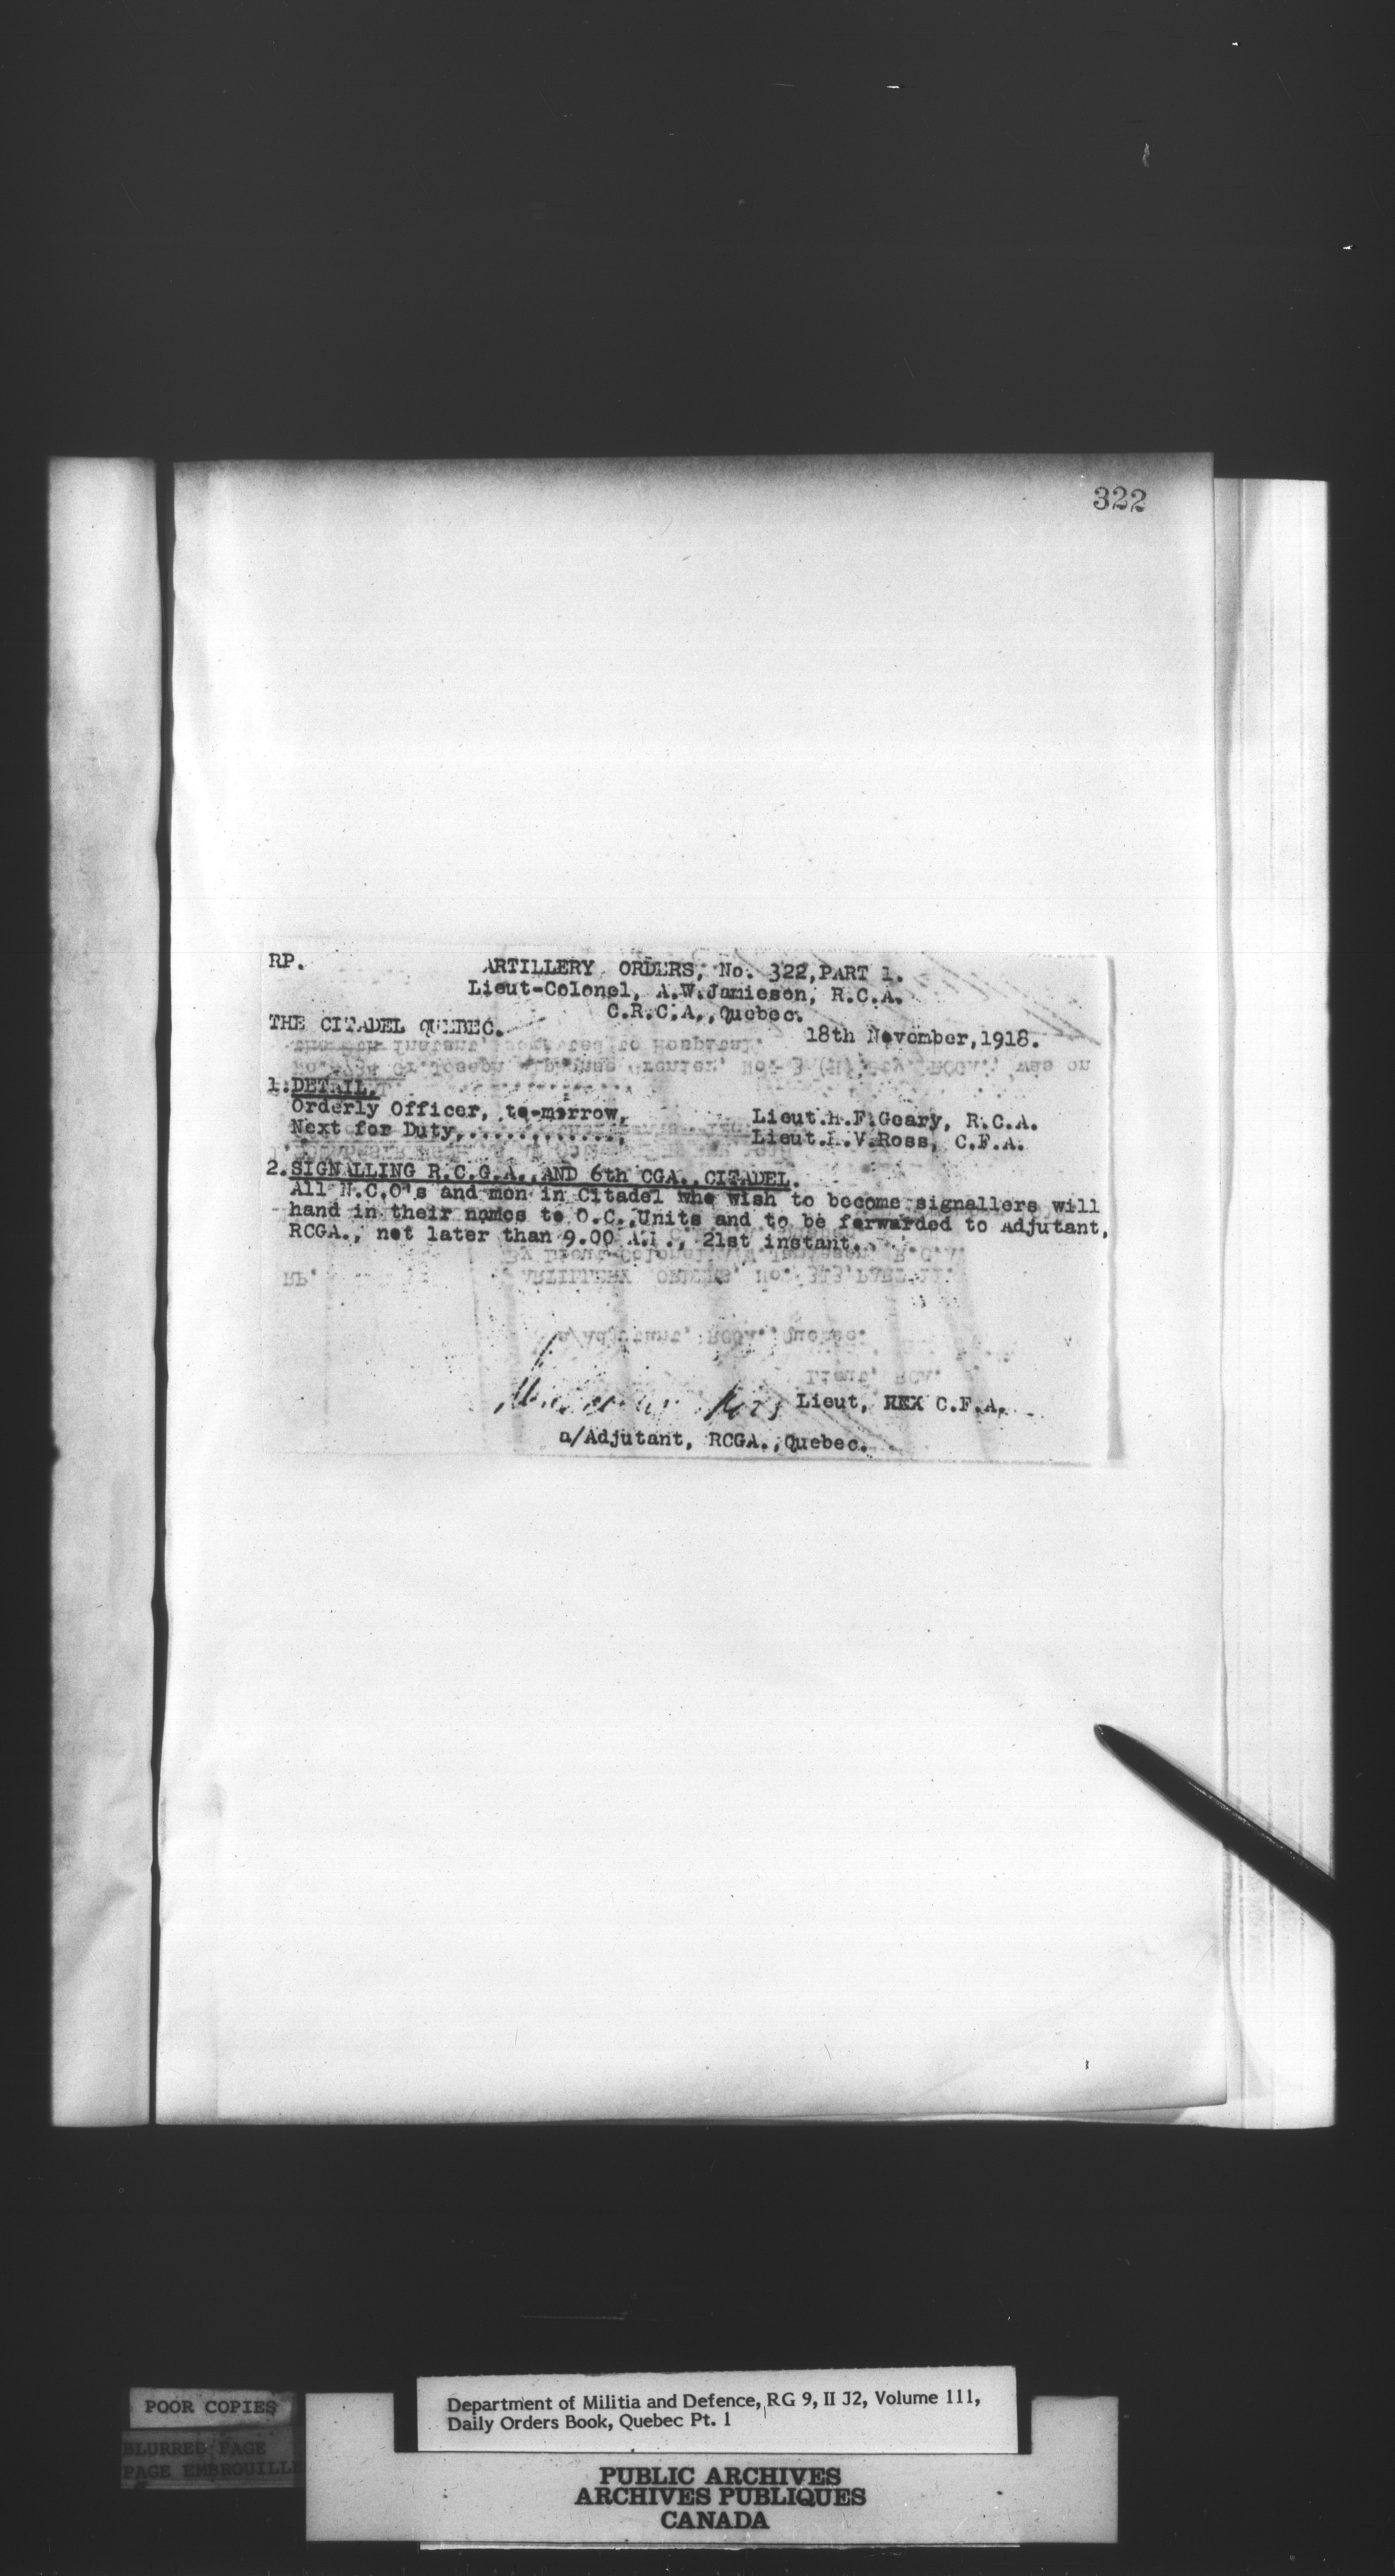 322
RP.
ARTILLERY ORDERS, No. 322, PART 1.
Lieut-Colonel, A.W.Jamieson, R.C.A.
C.R.C.A., Quebec.
THE CITADEL QUEBEC.
18th November, 1918.
1. DETAIL.
Orderly Officer, to-morrow, Lieut.H.F.Geary, R.C.A.
Next for Duty,............., Lieut. V.Ross, C.F.A.
2. SIGNALLING R.C.G.A., AND 6th CGA., CITADEL.
All N.C.O's and men in Citadel who wish to become signallers will
hand in their names to O.C., Units and to be forwarded to Adjutant,
RCGA., not later than 9.00 A.M., 21st instant.
Ross Lieut, C.F.A.
a/Adjutant, RCGA., Quebec.
POOR COPIES
BLURRED PAGE
PAGE EMBROUILL
Department of Militia and Defence, RG 9, II J2, Volume 111,
Daily Orders Book, Quebec Pt. 1
PUBLIC ARCHIVES
ARCHIVES PUBLIQUES
CANADA